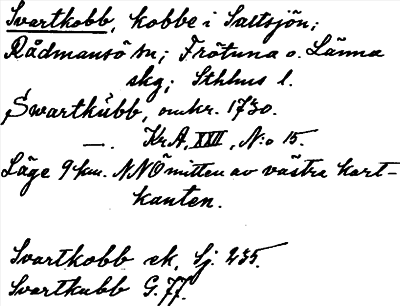 Svartkobb, kobbe i Saltsjön;
Rådmansö sn; Frötuna o. Länna
skg; Sthlms l.
Swartkubb, omkr. 1730.
—. Kr.A, XXII, N:o 15.
Läge 9 km. NNÖ mitten av västra kart-
kanten.
Svartkobb ek. Sj. 235.
Svartkubb G. 77.